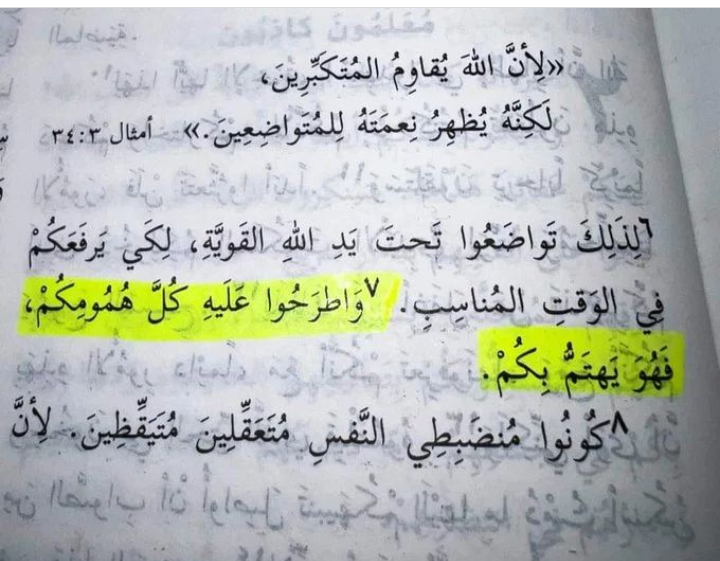 «لِأنَّ اللهَ يُقاوِمُ المُتَكَبِّرِينَ،
لَكِنَّهُ يُظهِرُ نِعمَتَهُ لِلمُتَواضِعِينَ.» أمثال ٣:٣٤
٦لِذَلِكَ تَواضَعُوا تَحتَ يَدِ اللهِ القَوِيَّةِ، لِكَي يَرفَعَكُمْ
فِي الوَقتِ المُناسِبِ. ٧وَاطرَحُوا عَلَيهِ كُلَّ هُمُومِكُمْ،
فَهُوَ يَهتَمُّ بِكُمْ.
٨كُونُوا مُنضَبِطِي النَّفسِ مُتَعَقِّلِينَ مُتَيَقِّظِينَ. لِأنَّ